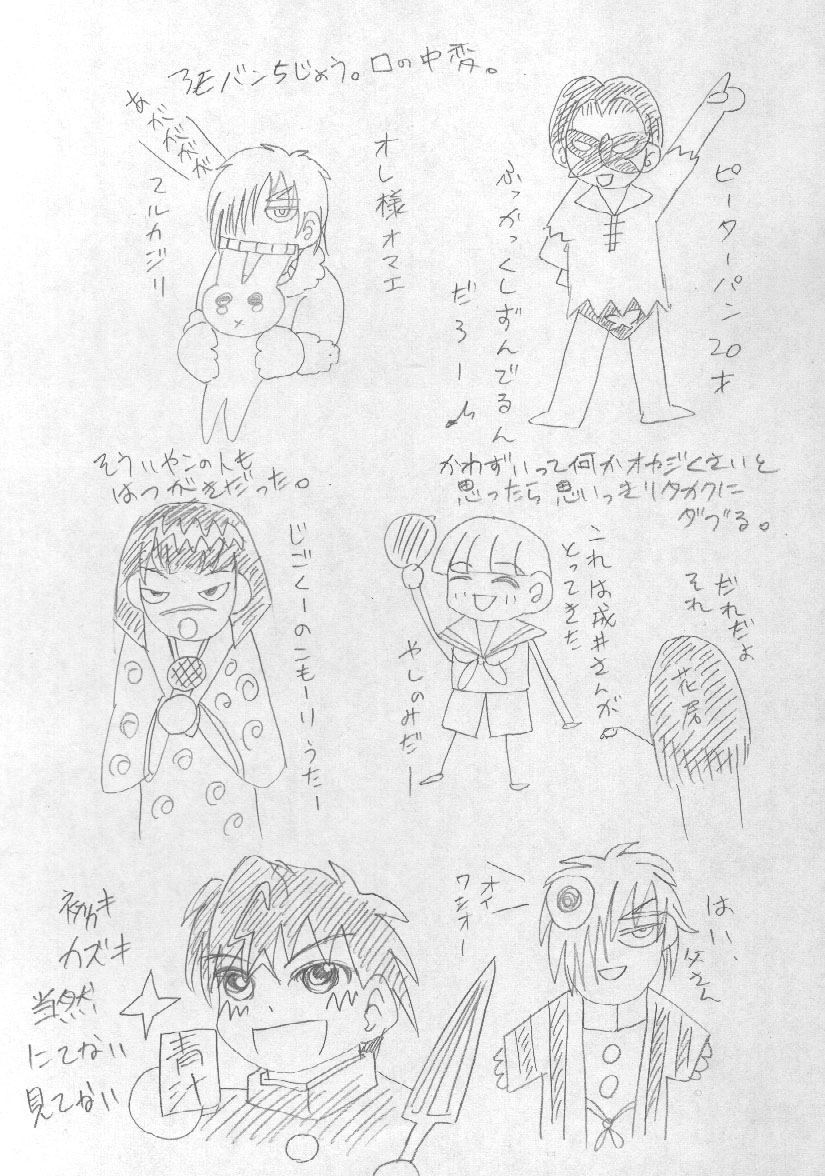 あがががが
マルカジリ
オレ様オマエ
ピーターパン20才
ふっかっくしずんでるん
だろー
そういやンの人も
はつがおだった。
かわずいって何かオヤジくさいと
思ったら思いっきりタカクに
ダブる。
じごくーのこもーりうたー
これは成井さんが
とってきた
やしのみだー
だれだよ
それ
花尻
カズキ
当然
にてない
見てない
青汁
オイ
はい、
父さん